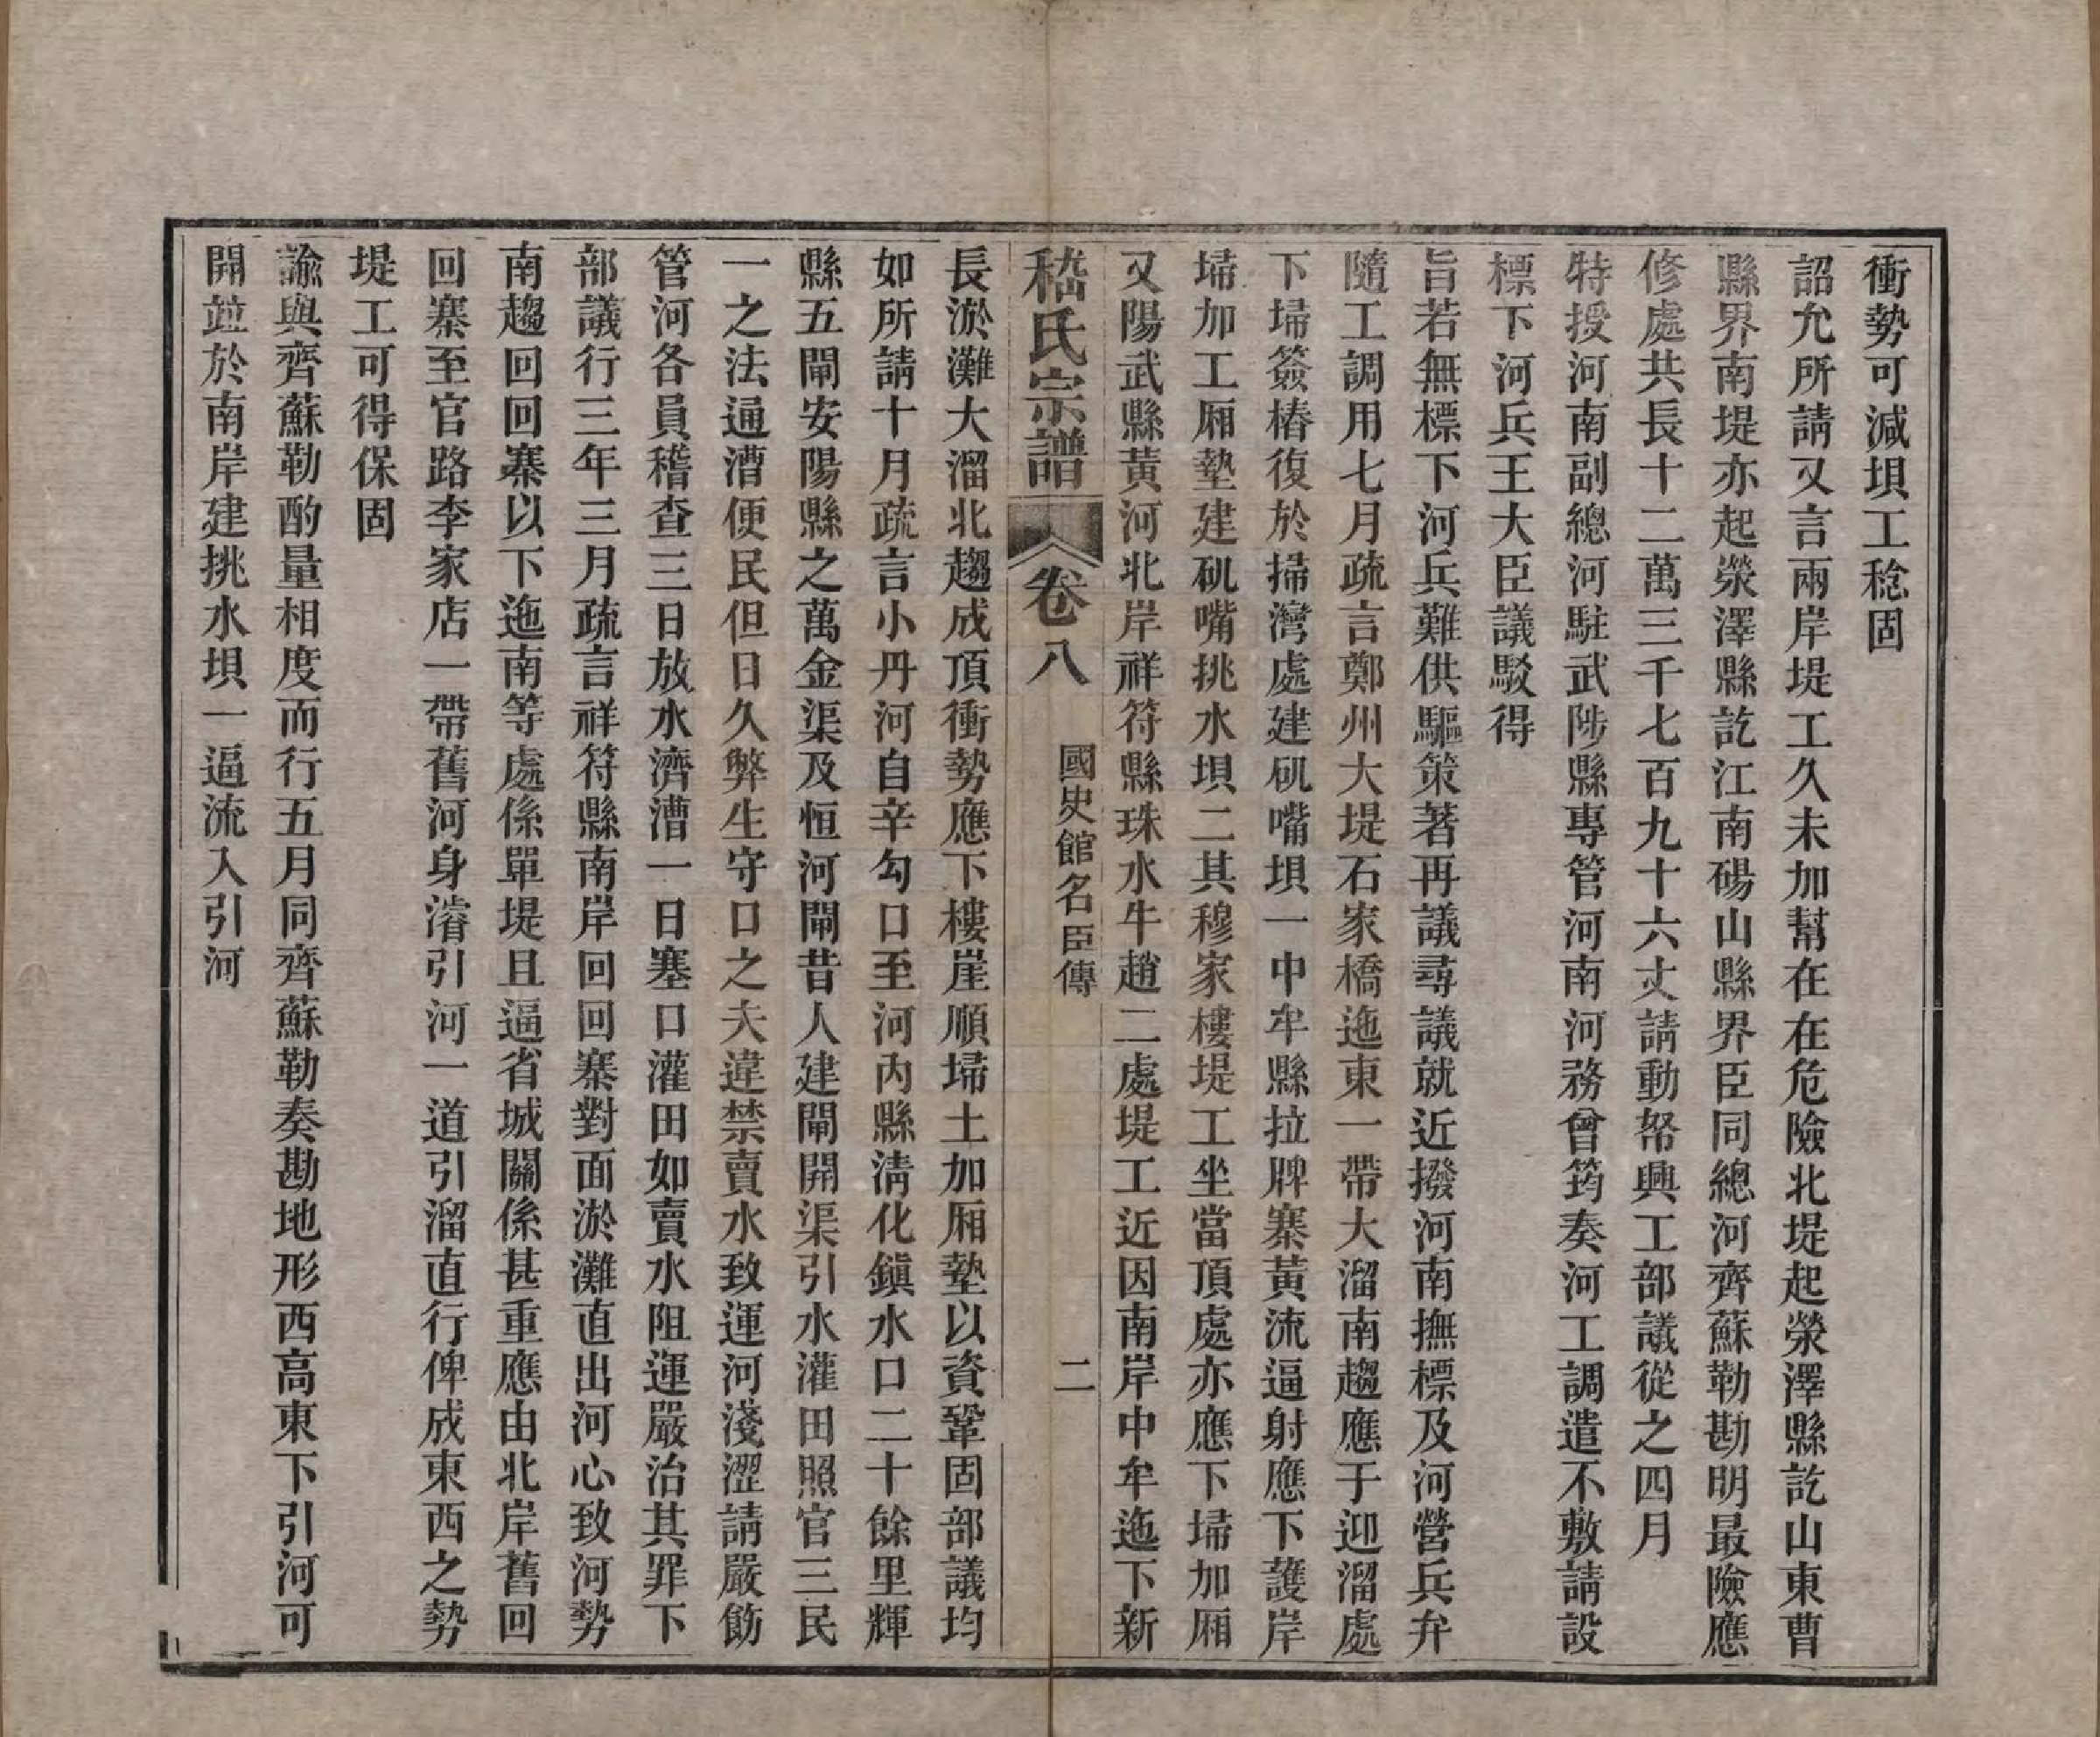 衝勢可減壩工稔固
詔允所請又言兩岸堤工久未加幫在在危險北堤起滎澤縣訖山東曹
縣界南堤亦起滎澤縣訖江南碭山縣界臣同總河齊蘇勒勘明最險應
修處共長十二萬三千七百九十六丈請動帑興工部議從之四月
特授河南副總河駐武陟縣專管河南河務曾筠奏河工調遣不敷請設
標下河兵王大臣議駁得
旨若無標下河兵難供驅策著再議尋議就近撥河南撫標及河營兵弁
隨工調用七月疏言鄭州大堤石家橋迤東一帶大溜南趨應于迎溜處
下埽簽樁復於掃灣處建磯嘴壩一中牟縣拉牌寨黃流逼射應下護岸
埽加工厢墊建磯嘴挑水壩二其穆家樓堤工坐當頂處亦應下埽加厢
又陽武縣黃河北岸祥符縣珠水牛趙二處堤工近因南岸中牟迤下新
嵇氏宗譜 卷八 國史館名臣傳 二
長淤灘大溜北趨成頂衝勢應下樓崖順埽土加厢墊以資鞏固部議均
如所請十月疏言小丹河自辛勾口至河內縣清化鎭水口二十餘里輝
縣五閘安陽縣之萬金渠及恒河閘昔人建閘開渠引水灌田照官三民
一之法通漕便民但日久弊生守口之夫違禁賣水致運河淺澀請嚴飭
管河各員稽查三日放水濟漕一日塞口灌田如賣水阻運嚴治其罪下
部議行三年三月疏言祥符縣南岸回回寨對面淤灘直出河心致河勢
南趨回回寨以下迤南等處係單堤且逼省城關係甚重應由北岸舊回
回寨至官路李家店一帶舊河身濬引河一道引溜直行俾成東西之勢
堤工可得保固
諭與齊蘇勒酌量相度而行五月同齊蘇勒奏勘地形西高東下引河可
開並於南岸建挑水壩一逼流入引河